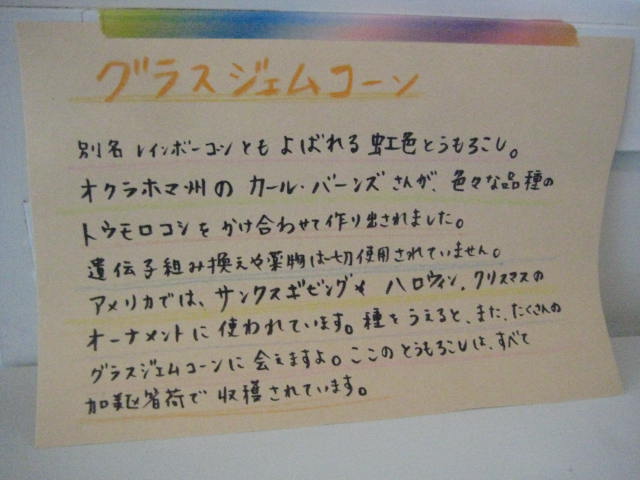 グラスジェムコーン
別名 レインボーコーンともよばれる 虹色とうもろこし。
オクラホマ州の カール・バーンズさんが、色々な品種の
トウモロコシをかけ合わせて作り出されました。
遺伝子組み換えや薬物は一切使用されていません。
アメリカでは、サンクスギビングや ハロウィン、クリスマスの
オーナメントに使われています。種をうえると、また、たくさんの
グラスジェムコーンに会えますよ。ここのとうもろこしは、すべて
で収穫されています。